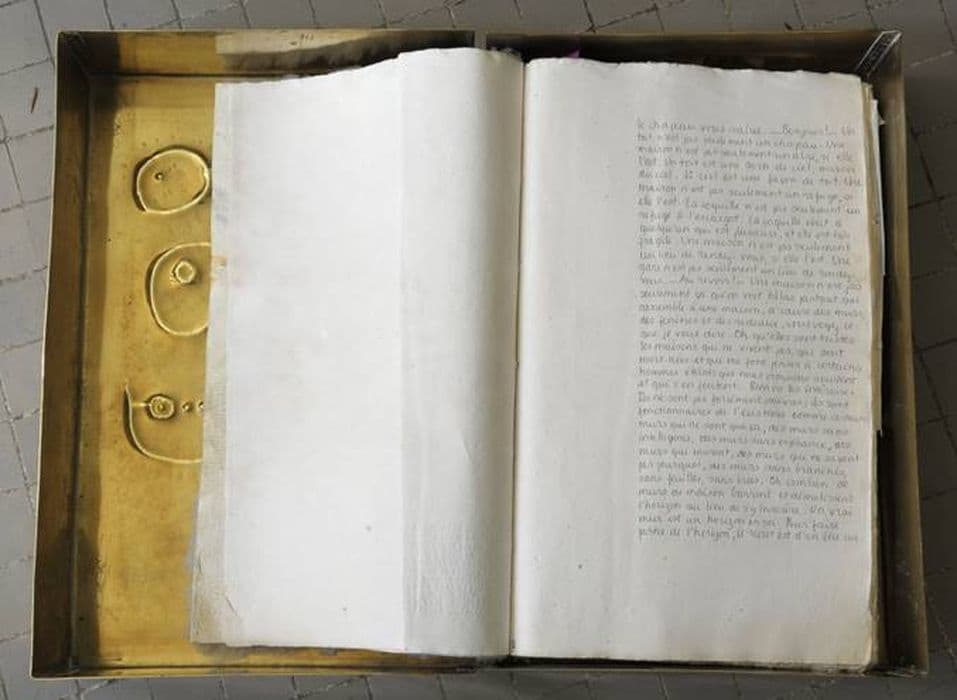 le chapeau vous salue. _ Bonjour!_ Un
toit n'est pas seulement un chapeau. Une
maison n'est pas seulement un abri, si elle
l'est. Un toit est une
du ciel, le ciel est une façon de toit. Une
maison n'est pas seulement un refuge, si
elle l'est. La coquille n'est pas seulement un
refuge à l'escargot. La coquille c'est à
quelqu'un qui est
fragile. Une maison n'est pas seulement
un lieu de rendez-vous, si elle l'est. Une
gare n'est pas seulement un lieu de rendez-
vous. _ Au revoir!_ Une maison n'est pas
seulement ça qu'on voit hélas partout qui
ressemble à une maison, à cause des murs,
des fenêtres et des rideaux, vous voyez ce
que je veux dire. Oh qu'elles sont tristes
les maisons qui ne vivent pas, qui sont
et qui me font penser à certains
hommes
et qui s'en foutent.
Ils ne sont pas forcément pauvres, ils sont
fonctionnaires de l'existence comme ces
murs qui ne sont que ça, des murs sans
intelligence, des murs sans espérance, des
murs qui meurent, des murs qui ne savent
pas pourquoi, des murs sans branches,
sans feuilles, sans bras. Oh combien de
murs de maison
l'horizon au lieu de s'y inscrire. Un vrai
mur est un horizon en soi. Pour faire
partie de l'horizon, le secret est d'en être un